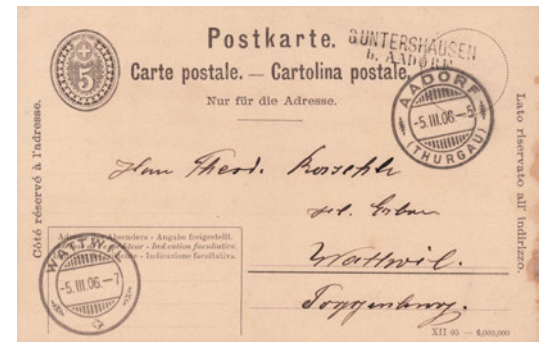 5
Postkarte.
GUNTERSHAUSEN
b. AADORF
Carte postale. — Cartolina postale.
Nur für die Adresse.
AADORF
-5.III.06.-5
(THURGAU)
Côté réservé à l'adresse.
Lato riservato all' indirizzo.
Herrn Theod.
Wattwil.
Toggenburg.
Adresse des Absenders - Angabe freigestellt.
- Indication facultative.
- Indicazione facoltativa.
WATTWIL
-5.III.06.-7
XII 05 — 6,000,000